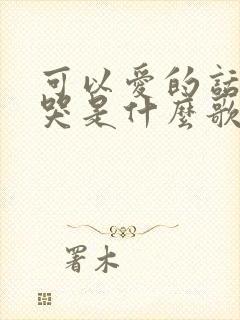 可以愛的話
哭是什麼歌
署木